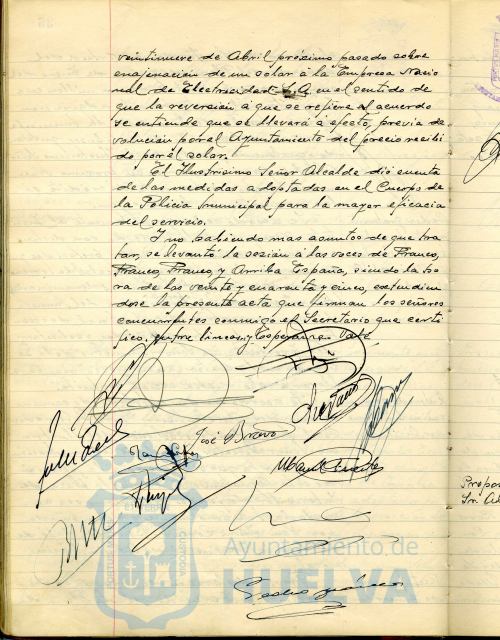 veintinueve de Abril próximo pasado sobre
enajenación de un solar á la Empresa Nacio
nal de Electricidad S.A. en el sentido de
que la reversión a que se refiere el acuerdo
se entiende que se llevará a efecto, previa de
volución por el Ayuntamiento del precio recibi
do por el solar.
El Ilustrísimo Señor Alcalde dió cuenta
de las medidas adoptadas en el Cuerpo de
la Policía municipal para la mayor eficacia
del servicio.
Y no habiendo mas asuntos de que tra
tar, se levantó la sesión á las voces de Franco,
Franco, Franco y Arriba España, siendo la ho
ra de las veinte y cuarenta y cinco, extendien
dose la presente acta que firman los señores
concurrentes conmigo el Secretario que certi
fico. entre lineas, y Vale
José Bravo
Ayuntamiento de
HUELVA
Pedro
Propo
Sr. Al